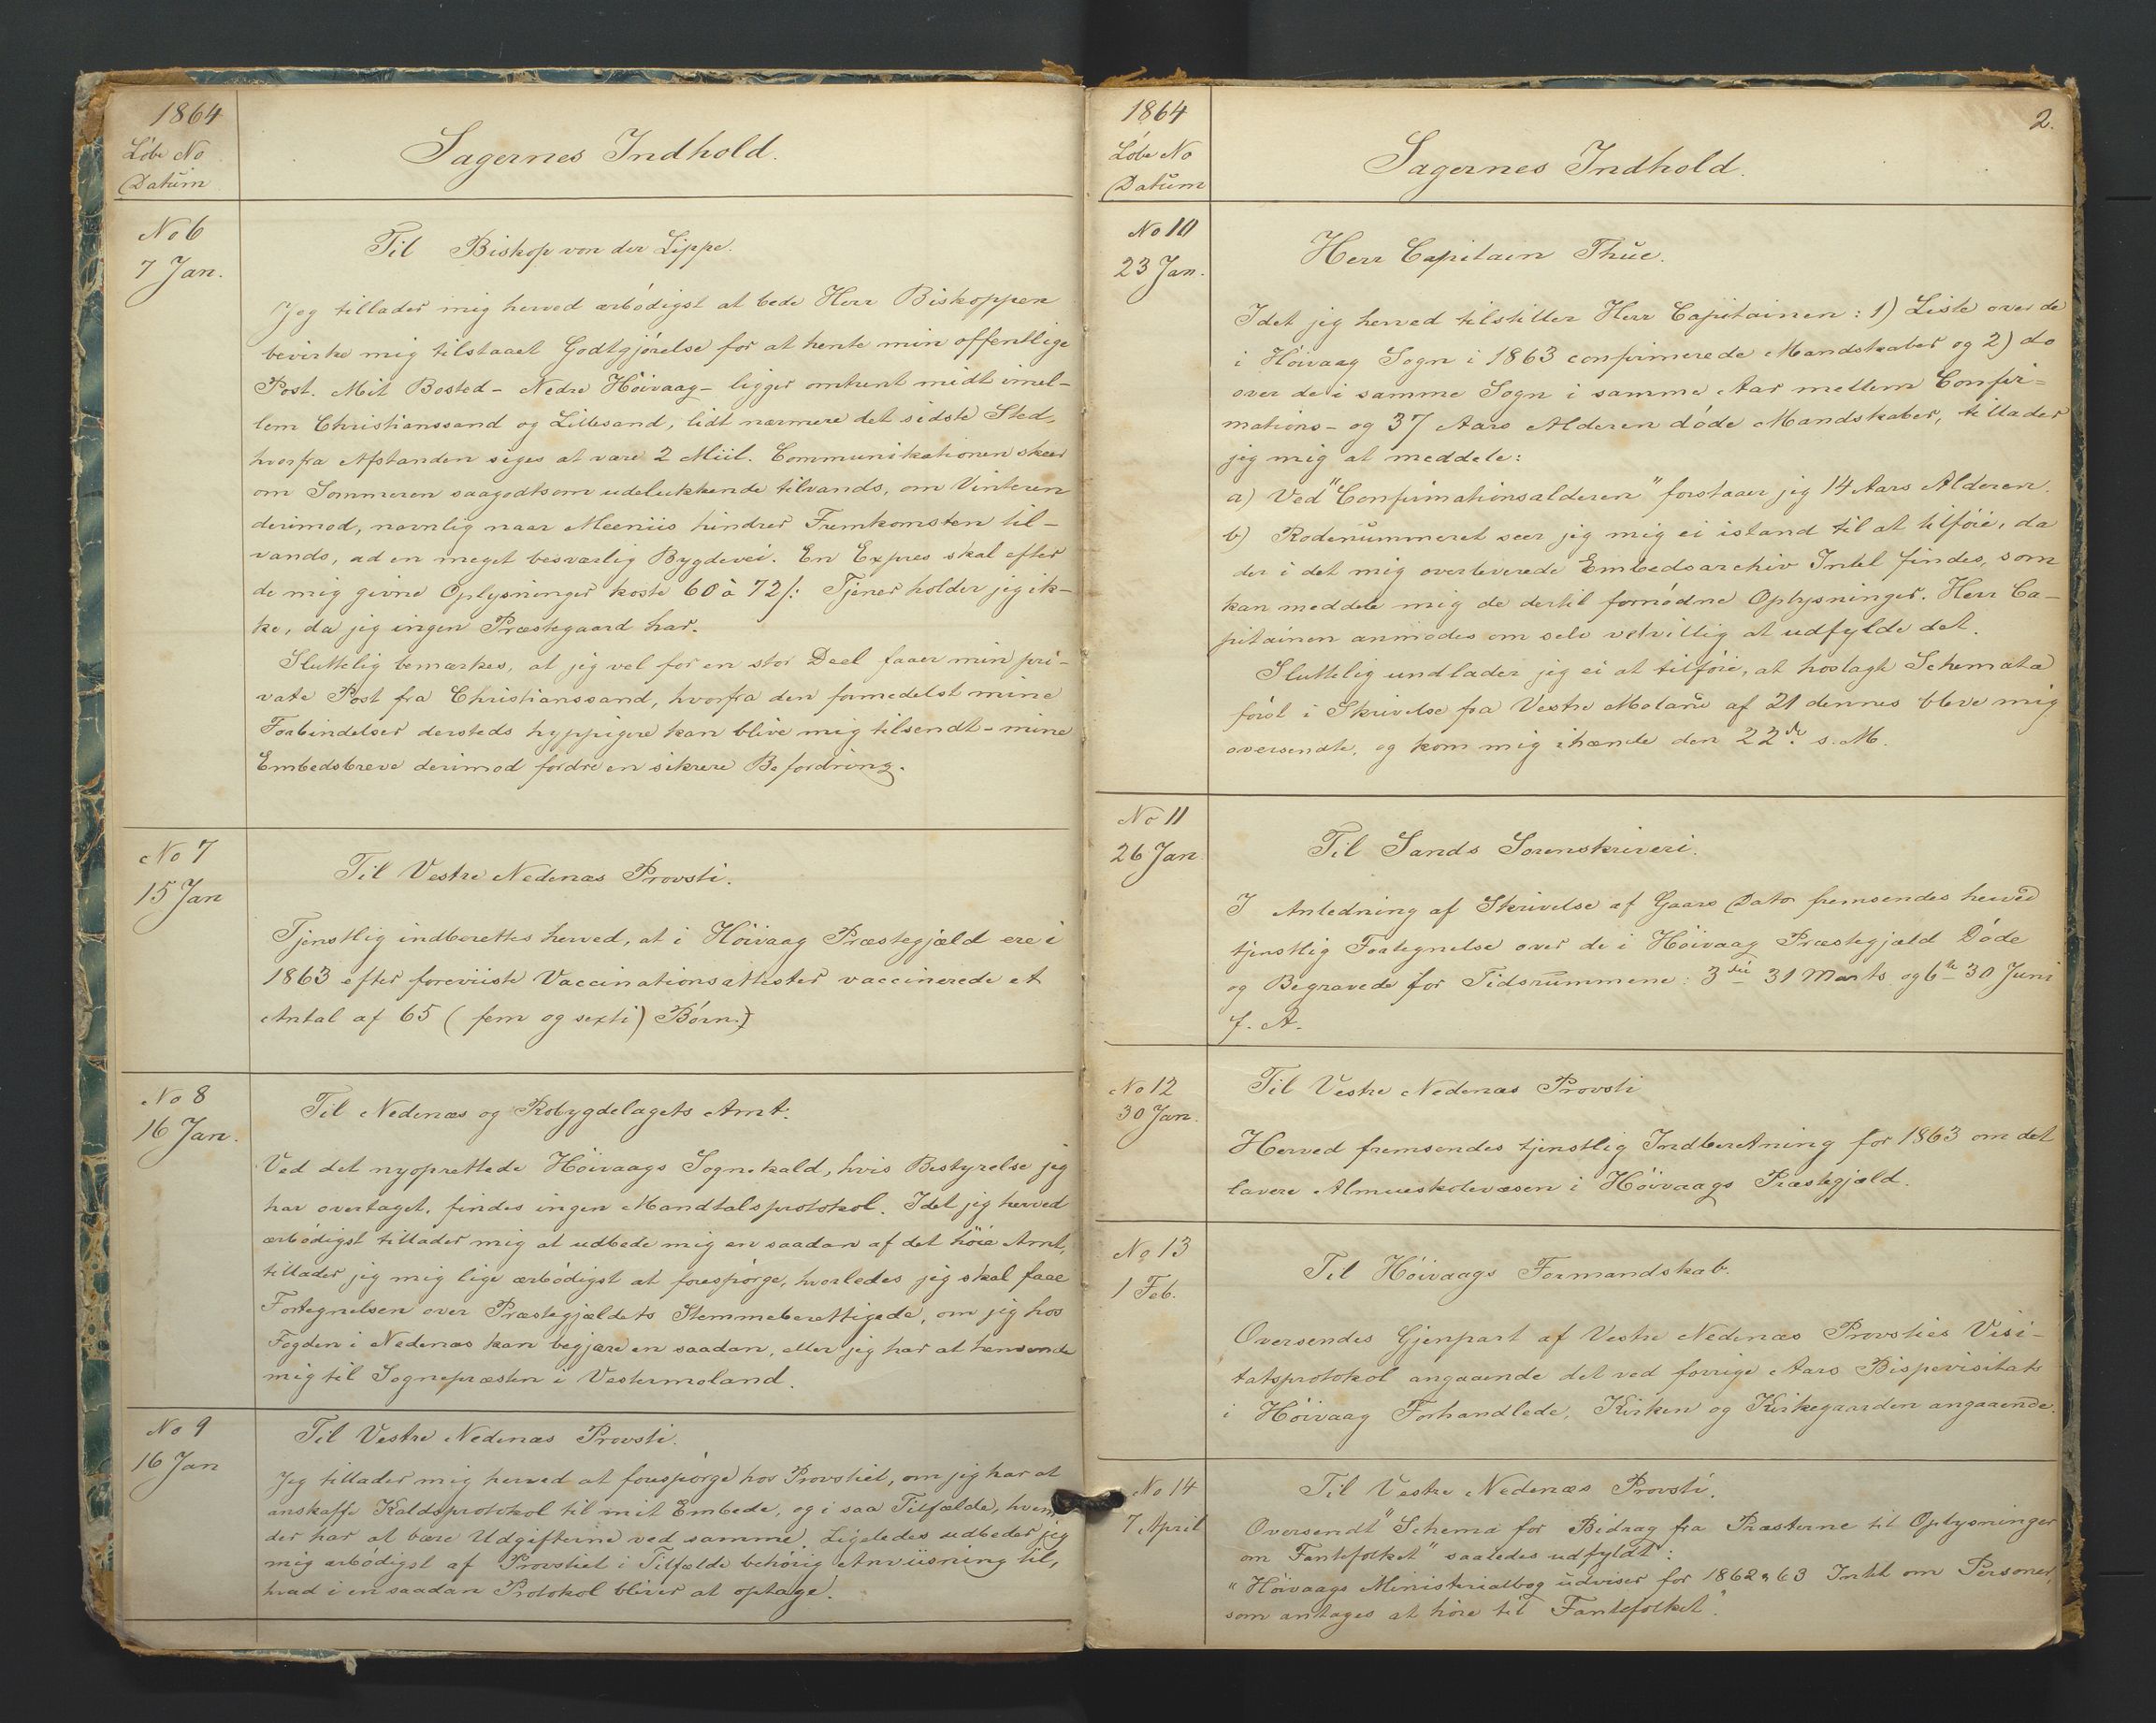 1864
Löbe No
Datum
Sagernes Indhold.
No 6
7 Jan.
Til Biskop von der Lippe.
Jeg tillader mig herved ærbödigst at bede Herr Biskoppen
bevirke mig tilstaaet Godtgjörelse for at hente min offentlige
Post. Mit Bosted - Nedre Höivaag - ligger omtrent midt imel-
lem Christianssand og Lillesand, lidt nærmere det sidste Sted,
hvorfra Afstanden siges at være 2 Miil. Communikationen skeer
om Sommeren saagodtsom udelukkende tilvands, om Vinteren
derimod, navnlig naar Meeniis hindrer Fremkomsten til-
vands, ad en meget besværlig Bygdevei. En Expres skal efter
de mig givne Oplysninger koste 60 à 72 /: Tjener holder jeg ik-
ke, da jeg ingen Præstegaard har.
Sluttelig bemærkes, at jeg vel for en stor Deel faaer min pri-
vate Post fra Christianssand, hvorfra den formedelst mine
Forbindelser dersteds hyppigere kan blive mig tilsendt - mine
Embedsbreve derimod fordre en sikrere Befordring.
No 7
15 Jan
Til Vestre Nedenæs Provsti.
Tjenstlig indberettes herved, at i Höivaag Præstegjæld ere i
1863 efter foreviiste Vaccinationsattester vaccinerede et
Antal af 65 (fem og sexti) Börn.
No 8
16 Jan.
Til Nedenæs og Robygdelagets Amt.
Ved det nyoprettede Höivaags Sognekald, hvis Bestyrelse jeg
har overtaget, findes ingen Mandtalsprotokol. Idet jeg herved
ærbödigst tillader mig at udbede mig en saadan af det höie Amt,
tillader jeg mig lige ærbödigst at forespörge, hvorledes jeg skal faae
Fortegnelsen over Præstegjældets Stemmeberettigede, om jeg hos
Fogden i Nedenæs kan begjære en saadan, eller jeg har at henvende
mig til Sognepræsten i Vestermoland.
No 9
16 Jan
Til Vestre Nedenæs Provsti.
Jeg tillader mig herved at forespörge hos Provstiet, om jeg har at
anskaffe Kaldsprotokol til mit Embede, og i saa Tilfælde, hvem
der har at bære Udgifterne ved samme. Ligeledes udbeder jeg
mig ærbödigst af Provstiet i Tilfælde behörig Anviisning til,
hvad i en saadan Protokol bliver at optage.
1864
Löbe No
Datum
2.
Sagernes Indhold.
No 10
23 Jan.
Herr Capitain Thue.
Idet jeg herved tilstiller Herr Capitainen: 1) Liste over de
i Höivaag Sogn i 1863 confirmerede Mandskaber og 2) do
over de i samme Sogn i samme Aar mellem Confir=
mations- og 37 Aars Alderen döde Mandskaber, tillader
jeg mig at meddele:
a) Ved "Confirmationsalderen" forstaaer jeg 14 Aars Alderen.
b) Rodenummeret seer jeg mig ei istand til at tilföie, da
der i det mig overleverede Embedsarchiv Intet findes, som
kan meddele mig de dertil fornödne Oplysninger. Herr Ca-
pitainen anmodes om selv velvillig at udfylde det.
Sluttelig undlader jeg ei at tilföie, at hoslagte Schemata
först i Skrivelse fra Vestre Moland af 21 dennes bleve mig
oversendte, og kom mig ihænde den 22de s. M.
No 11
26 Jan
Til Sands Sorenskriveri.
I Anledning af Skrivelse af Gaars Dato fremsendes herved
tjenstlig Fortegnelse over de i Höivaag Præstegjæld Döde
og Begravede for Tidsrummene: 3die - 31 Marts og 6te - 30 Juni
f. A.
No 12
30 Jan.
Til Vestre Nedenæs Provsti
Herved fremsendes tjenstlig Indberetning for 1863 om det
lavere Almueskolevæsen i Höivaags Præstegjæld.
No 13
1 Feb.
Til Höivaags Formandskab.
Oversendes Gjenpart af Vestre Nedenæs Provsties Visi-
tatsprotokol angaaende det ved forrige Aars Bispevisitats
i Höivaag Forhandlede, Kirken og Kirkegaarden angaaende.
No 14
7 April
Til Vestre Nedenæs Provsti.
Oversendt "Schema for Bidrag fra Præsterne til Oplysninger
om Fantefolket" saaledes udfyldt:
"Höivaags Ministerialbog udviser for 1862 & 63 Intet om Personer,
som antages at höre til Fantefolket".